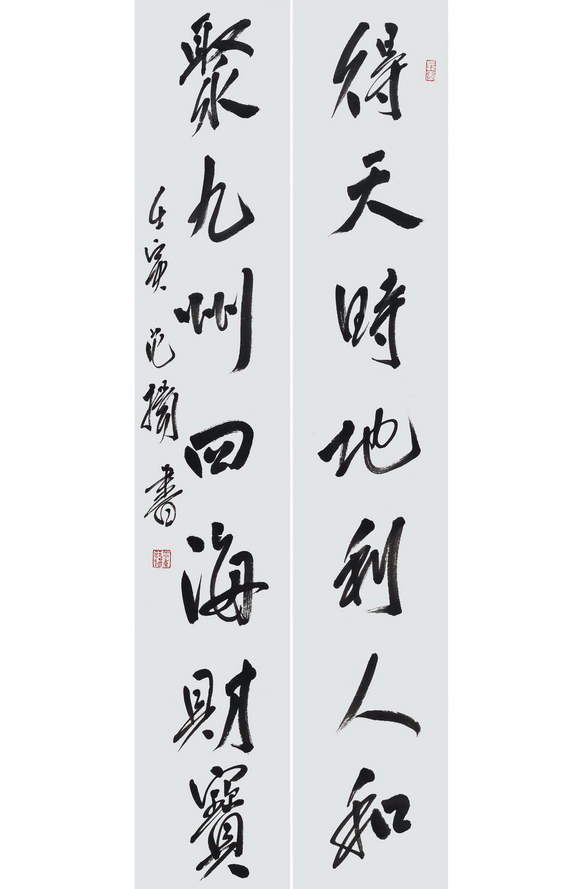 得天時地利人和
聚九州四海財寳
壬寅
書